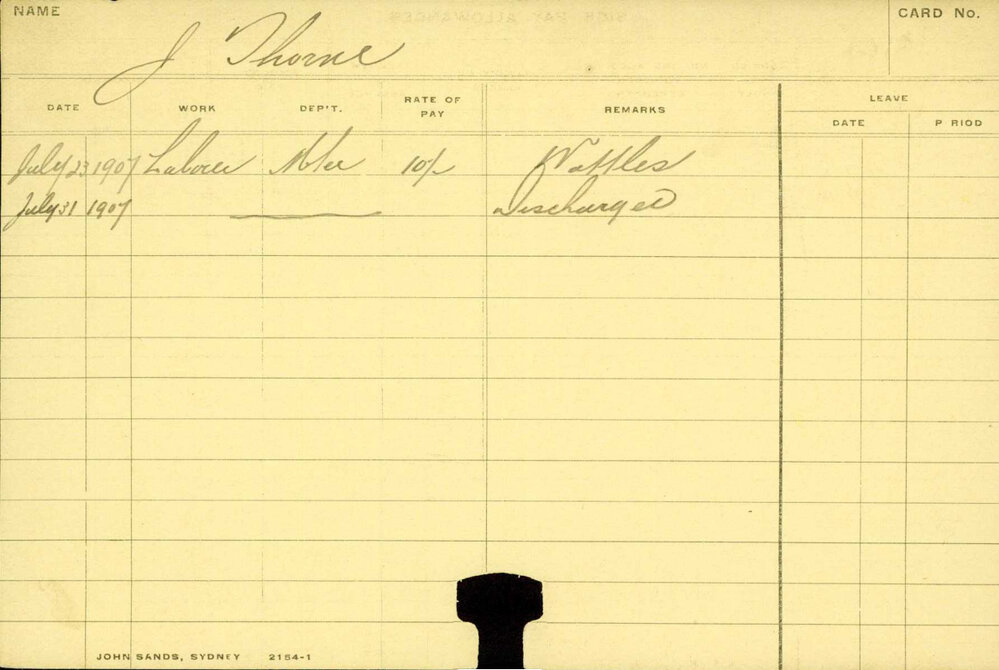 NAME
J Thorne
CARD No.
DATE WORK DEP'T. RATE OF PAY REMARKS LEAVE
DATE P RIOD
July 23 1907 Laborer 10/- Wattles
July 31 1907 Discharged
JOHN SANDS, SYDNEY 2154-1